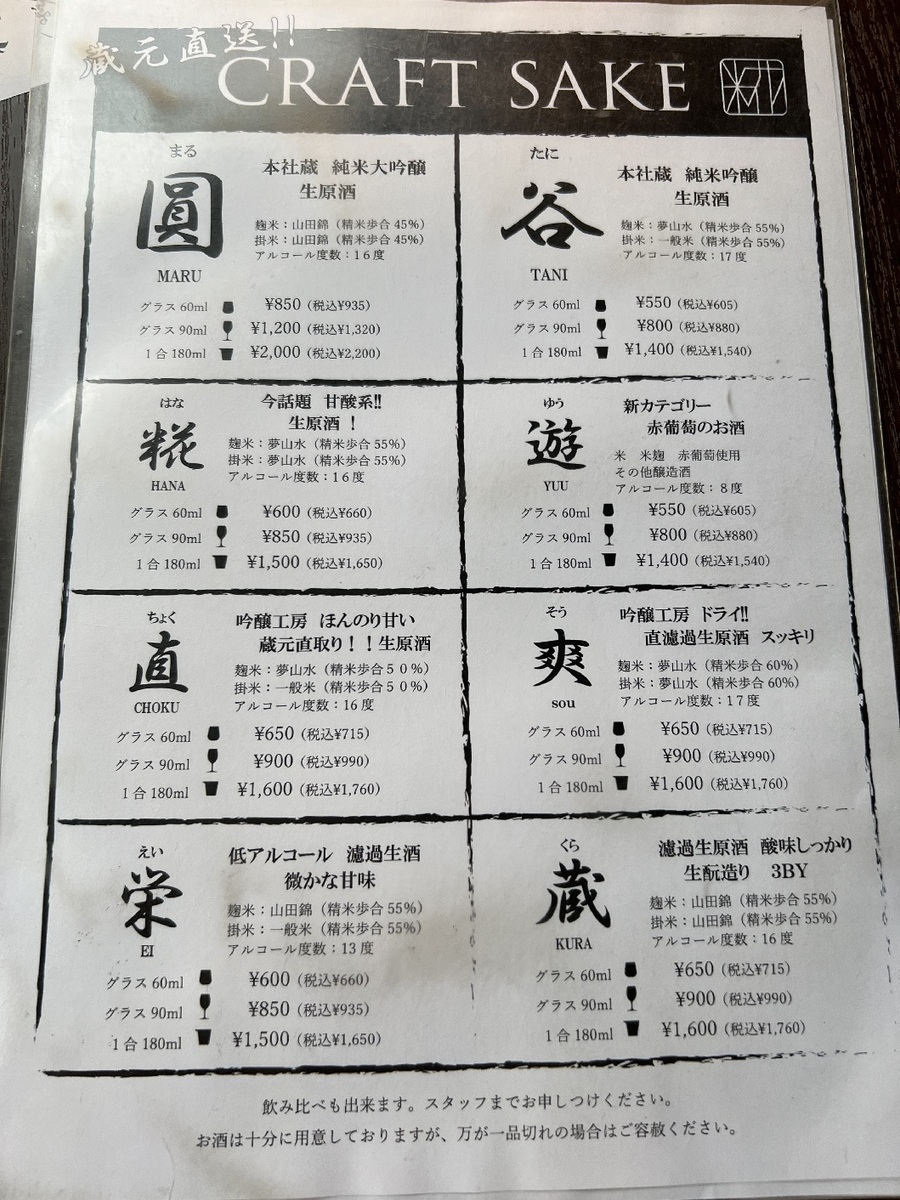 蔵元直送!!
CRAFT SAKE
まる
圓
MARU
本社蔵 純米大吟醸
生原酒
麹米：山田錦（精米歩合 45%）
掛米：山田錦（精米歩合 45%）
アルコール度数：1６度
グラス 60ml ¥850（税込¥935）
グラス 90ml ¥1,200（税込¥1,320）
1 合 180ml ¥2,000（税込¥2,200）
たに
谷
TANI
本社蔵 純米吟醸
生原酒
麹米：夢山水（精米歩合 55%）
掛米：一般米（精米歩合 55%）
アルコール度数：17 度
グラス 60ml ¥550（税込¥605）
グラス 90ml ¥800（税込¥880）
1 合 180ml ¥1,400（税込¥1,540）
はな
糀
HANA
今話題 甘酸系!!
生原酒 ！
麹米：夢山水（精米歩合 55%）
掛米：夢山水（精米歩合 55%）
アルコール度数：1６度
グラス 60ml ¥600（税込¥660）
グラス 90ml ¥850（税込¥935）
1 合 180ml ¥1,500（税込¥1,650）
ゆう
遊
YUU
新カテゴリー
赤葡萄のお酒
米 米麹 赤葡萄使用
その他醸造酒
アルコール度数：８度
グラス 60ml ¥550（税込¥605）
グラス 90ml ¥800（税込¥880）
1 合 180ml ¥1,400（税込¥1,540）
ちょく
直
CHOKU
吟醸工房 ほんのり甘い
蔵元直取り！！生原酒
麹米：夢山水（精米歩合５０%）
掛米：一般米（精米歩合５０%）
アルコール度数：16 度
グラス 60ml ¥650（税込¥715）
グラス 90ml ¥900（税込¥990）
1 合 180ml ¥1,600（税込¥1,760）
そう
爽
sou
吟醸工房 ドライ!!
直濾過生原酒 スッキリ
麹米：夢山水（精米歩合 60%）
掛米：夢山水（精米歩合 60%）
アルコール度数：1７度
グラス 60ml ¥650（税込¥715）
グラス 90ml ¥900（税込¥990）
1 合 180ml ¥1,600（税込¥1,760）
えい
栄
EI
低アルコール 濾過生酒
微かな甘味
麹米：山田錦（精米歩合 55%）
掛米：一般米（精米歩合 55%）
アルコール度数：13 度
グラス 60ml ¥600（税込¥660）
グラス 90ml ¥850（税込¥935）
1 合 180ml ¥1,500（税込¥1,650）
くら
蔵
KURA
濾過生原酒 酸味しっかり
生酛造り 3BY
麹米：山田錦（精米歩合 55%）
掛米：山田錦（精米歩合 55%）
アルコール度数：16 度
グラス 60ml ¥650（税込¥715）
グラス 90ml ¥900（税込¥990）
1 合 180ml ¥1,600（税込¥1,760）
飲み比べも出来ます。スタッフまでお申しつけください。
お酒は十分に用意しておりますが、万が一品切れの場合はご容赦ください。